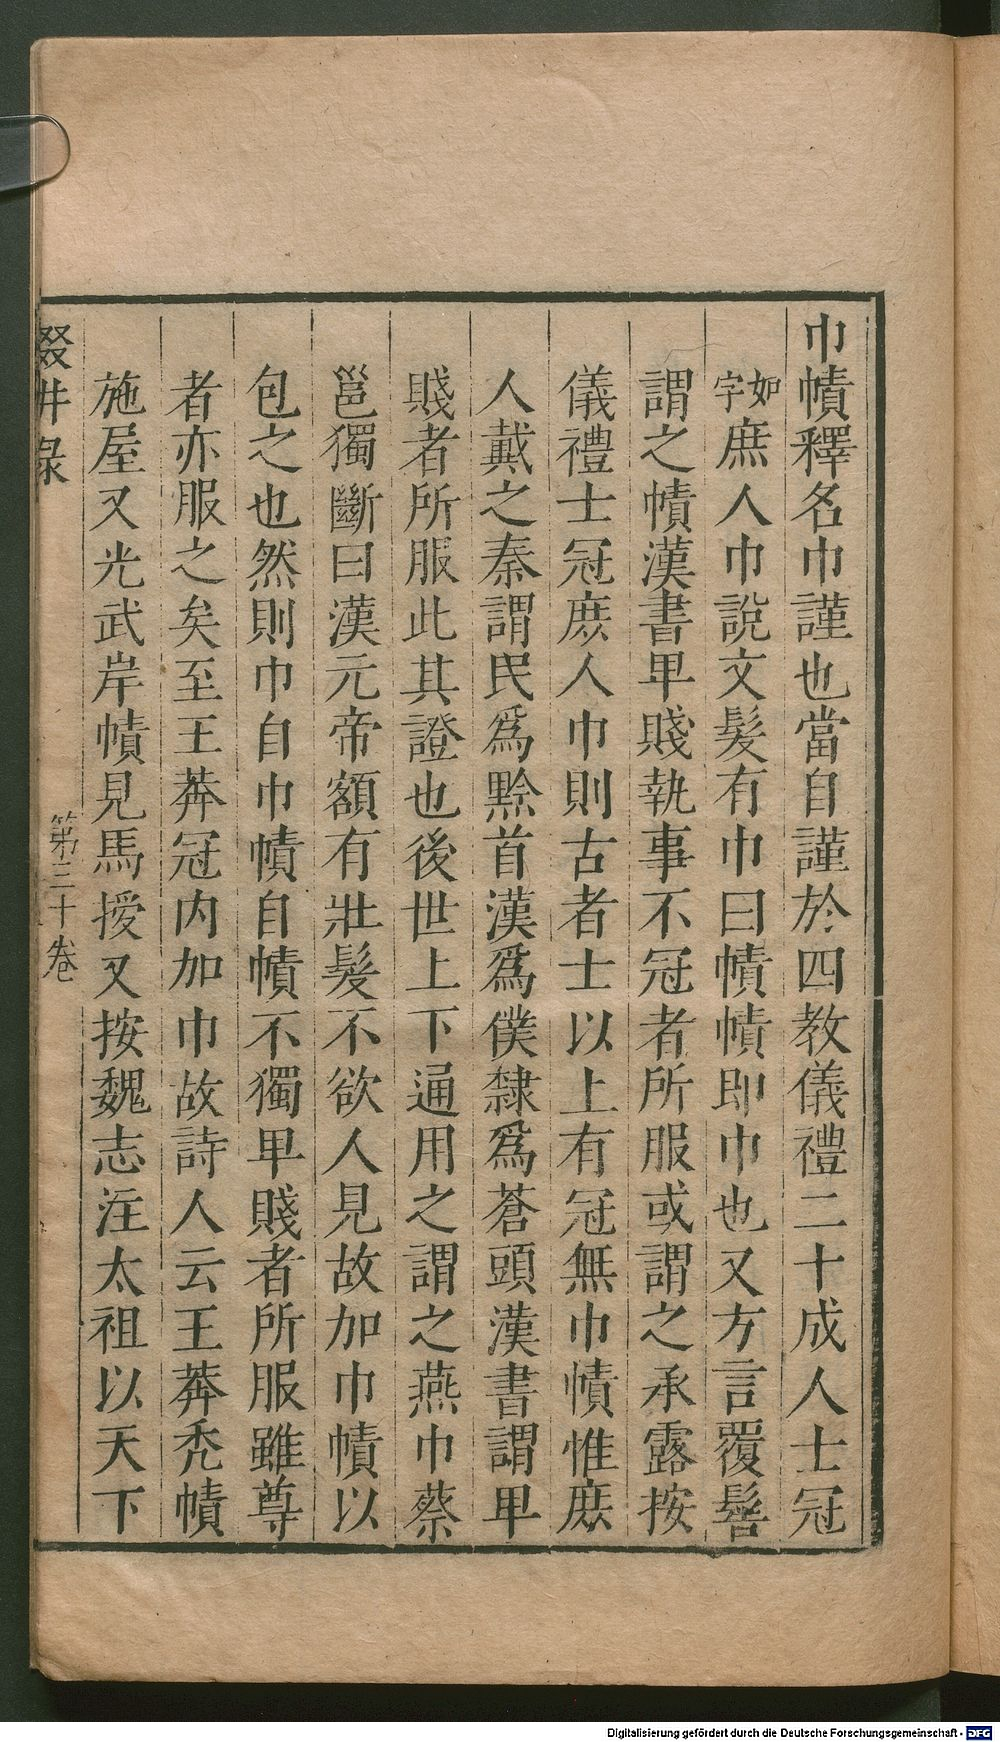 巾幘釋名巾謹也當自謹於四教儀禮二十成人士冠
如字庶人巾說文髮有巾曰幘幘即巾也又方言覆髻
謂之幘漢書卑賤執事不冠者所服或謂之承露按
儀禮士冠庶人巾則古者士以上有冠無巾幘惟庶
人戴之秦謂民爲黔首漢爲僕隸爲蒼頭漢書謂卑
賤者所服此其證也後世上下通用之謂之燕巾蔡
邕獨斷曰漢元帝額有壯髮不欲人見故加巾幘以
包之也然則巾自巾幘自幘不獨卑賤者所服雖尊
者亦服之矣至王莽冠内加巾故詩人云王莽禿幘
施屋又光武岸幘見馬援又按魏志注太祖以天下
綴耕錄
第三十卷
Digitalisierung gefördert durch die Deutsche Forschungsgemeinschaft - DFG